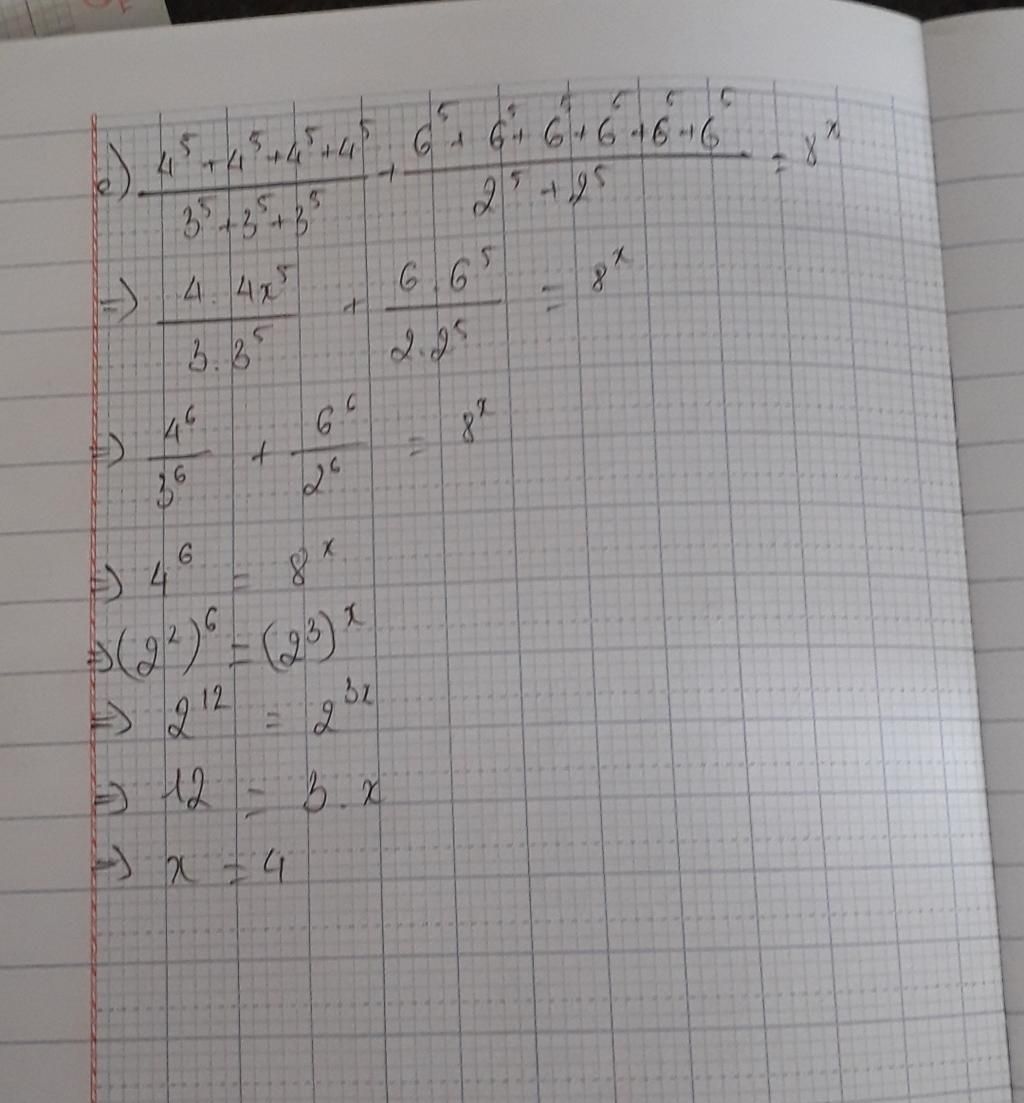 e) (4⁵ + 4⁵ + 4⁵ + 4⁵)/(3⁵ + 3⁵ + 3⁵) + (6⁵ + 6⁵ + 6⁵ + 6⁵ + 6⁵ + 6⁵)/(2⁵ + 2⁵) = 8ˣ
=> (4 . 4x⁵)/(3 . 3⁵) + (6 . 6⁵)/(2 . 2⁵) = 8ˣ
=> 4⁶/3⁶ + 6⁶/2⁶ = 8ˣ
=> 4⁶ = 8ˣ
=> (2²)⁶ = (2³)ˣ
=> 2¹² = 2³ˣ
=> 12 = 3 . x
=> x = 4